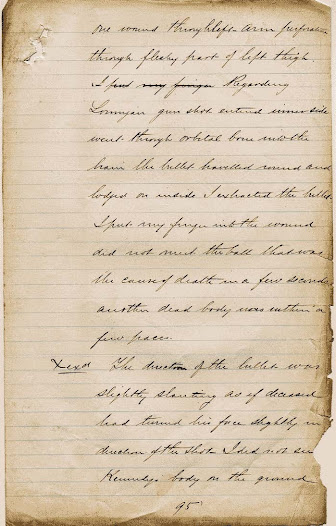 one wound through left arm perforation
through fleshy part of left thigh.
I put my finger Regarding
Lonigan gun shot entered inner side
went through orbital bone into the
brain the bullet travelled round and
lodged on inside I extracted the bullet
I put my finger into the wound
did not meet the ball that was
the cause of death in a few seconds
another dead body was within a
few paces.
Xexd The direction of the bullet was
slightly slanting as if deceased
had turned his face slightly in
direction of the shot. I did not see
Kennedys body on the ground
95